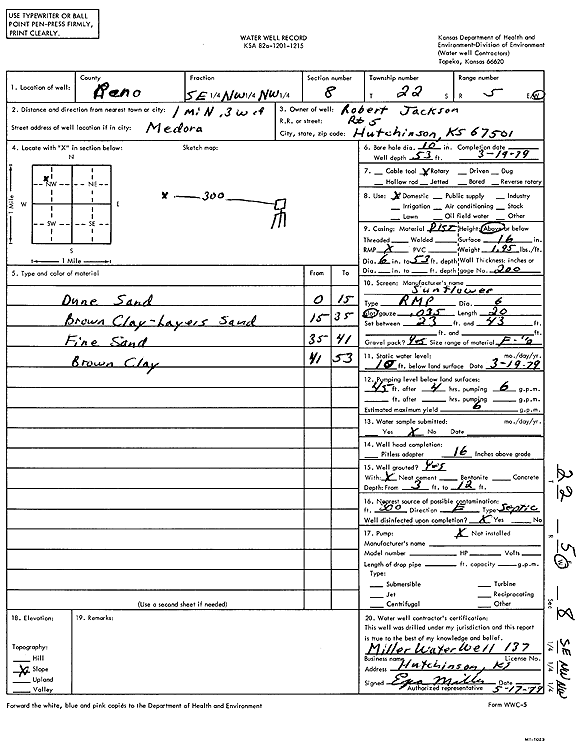 USE TYPEWRITER OR BALL
POINT PEN-PRESS FIRMLY,
PRINT CLEARLY.
WATER WELL RECORD
KSA 82a-1201-1215
Kansas Department of Health and
Environment-Division of Environment
(Water well Contractors)
Topeka, Kansas 66620
1. Location of well: County Reno Fraction SE 1/4 NW 1/4 NW 1/4 Section number 8 Township number T 22 S Range number R 5 E/W
2. Distance and direction from nearest town or city: 1 mi N, 3 w of
Street address of well location if in city: Medora
3. Owner of well: Robert Jackson
R.R. or street: Rt 5
City, state, zip code: Hutchinson, KS 67501
4. Locate with "X" in section below: Sketch map:
N
X
NW NE
W E
SW SE
S
1 Mile
1 Mile
X 300
6. Bore hole dia. 10 in. Completion date
Well depth 53 ft. 3-19-79
7. Cable tool X Rotary Driven Dug
Hollow rod Jetted Bored Reverse rotary
8. Use: X Domestic Public supply Industry
Irrigation Air conditioning Stock
Lawn Oil field water Other
9. Casing: Material Height: Above or below
Threaded Welded Surface 16 in.
RMP X PVC Weight 1.95 lbs./ft.
Dia. 6 in. to 53 ft. depth Wall Thickness: inches or
Dia. in. to ft. depth gage No. 200
5. Type and color of material From To
Dune Sand 0 15
Brown Clay-Layers Sand 15 35
Fine Sand 35 41
Brown Clay 41 53
(Use a second sheet if needed)
10. Screen: Manufacturer's name
Sunflower
Type RMP Dia. 6
Slot/gauze .035 Length 20
Set between 23 ft. and 43 ft.
ft. and ft.
Gravel pack? Yes Size range of material
11. Static water level: mo./day/yr.
10 ft. below land surface Date 3-19-79
12. Pumping level below land surfaces:
45 ft. after 4 hrs. pumping 6 g.p.m.
ft. after hrs. pumping g.p.m.
Estimated maximum yield 6 g.p.m.
13. Water sample submitted: mo./day/yr.
Yes X No Date
14. Well head completion:
Pitless adapter 16 Inches above grade
15. Well grouted? Yes
With: X Neat cement Bentonite Concrete
Depth: From 3 ft. to 12 ft.
16. Nearest source of possible contamination:
ft. 300 Direction E Type Septic
Well disinfected upon completion? X Yes No
17. Pump: X Not installed
Manufacturer's name
Model number HP Volts
Length of drop pipe ft. capacity g.p.m.
Type:
Submersible Turbine
Jet Reciprocating
Centrifugal Other
18. Elevation:
Topography:
Hill
X Slope
Upland
Valley
19. Remarks:
20. Water well contractor's certification:
This well was drilled under my jurisdiction and this report
is true to the best of my knowledge and belief.
Miller Water Well 137
Business name License No.
Address Hutchinson, KS
Signed Miller Date 5-17-79
Authorized representative
Forward the white, blue and pink copies to the Department of Health and Environment
Form WWC-5
T 22 R 5 W Sec 8 SE 1/4 NW 1/4 NW 1/4